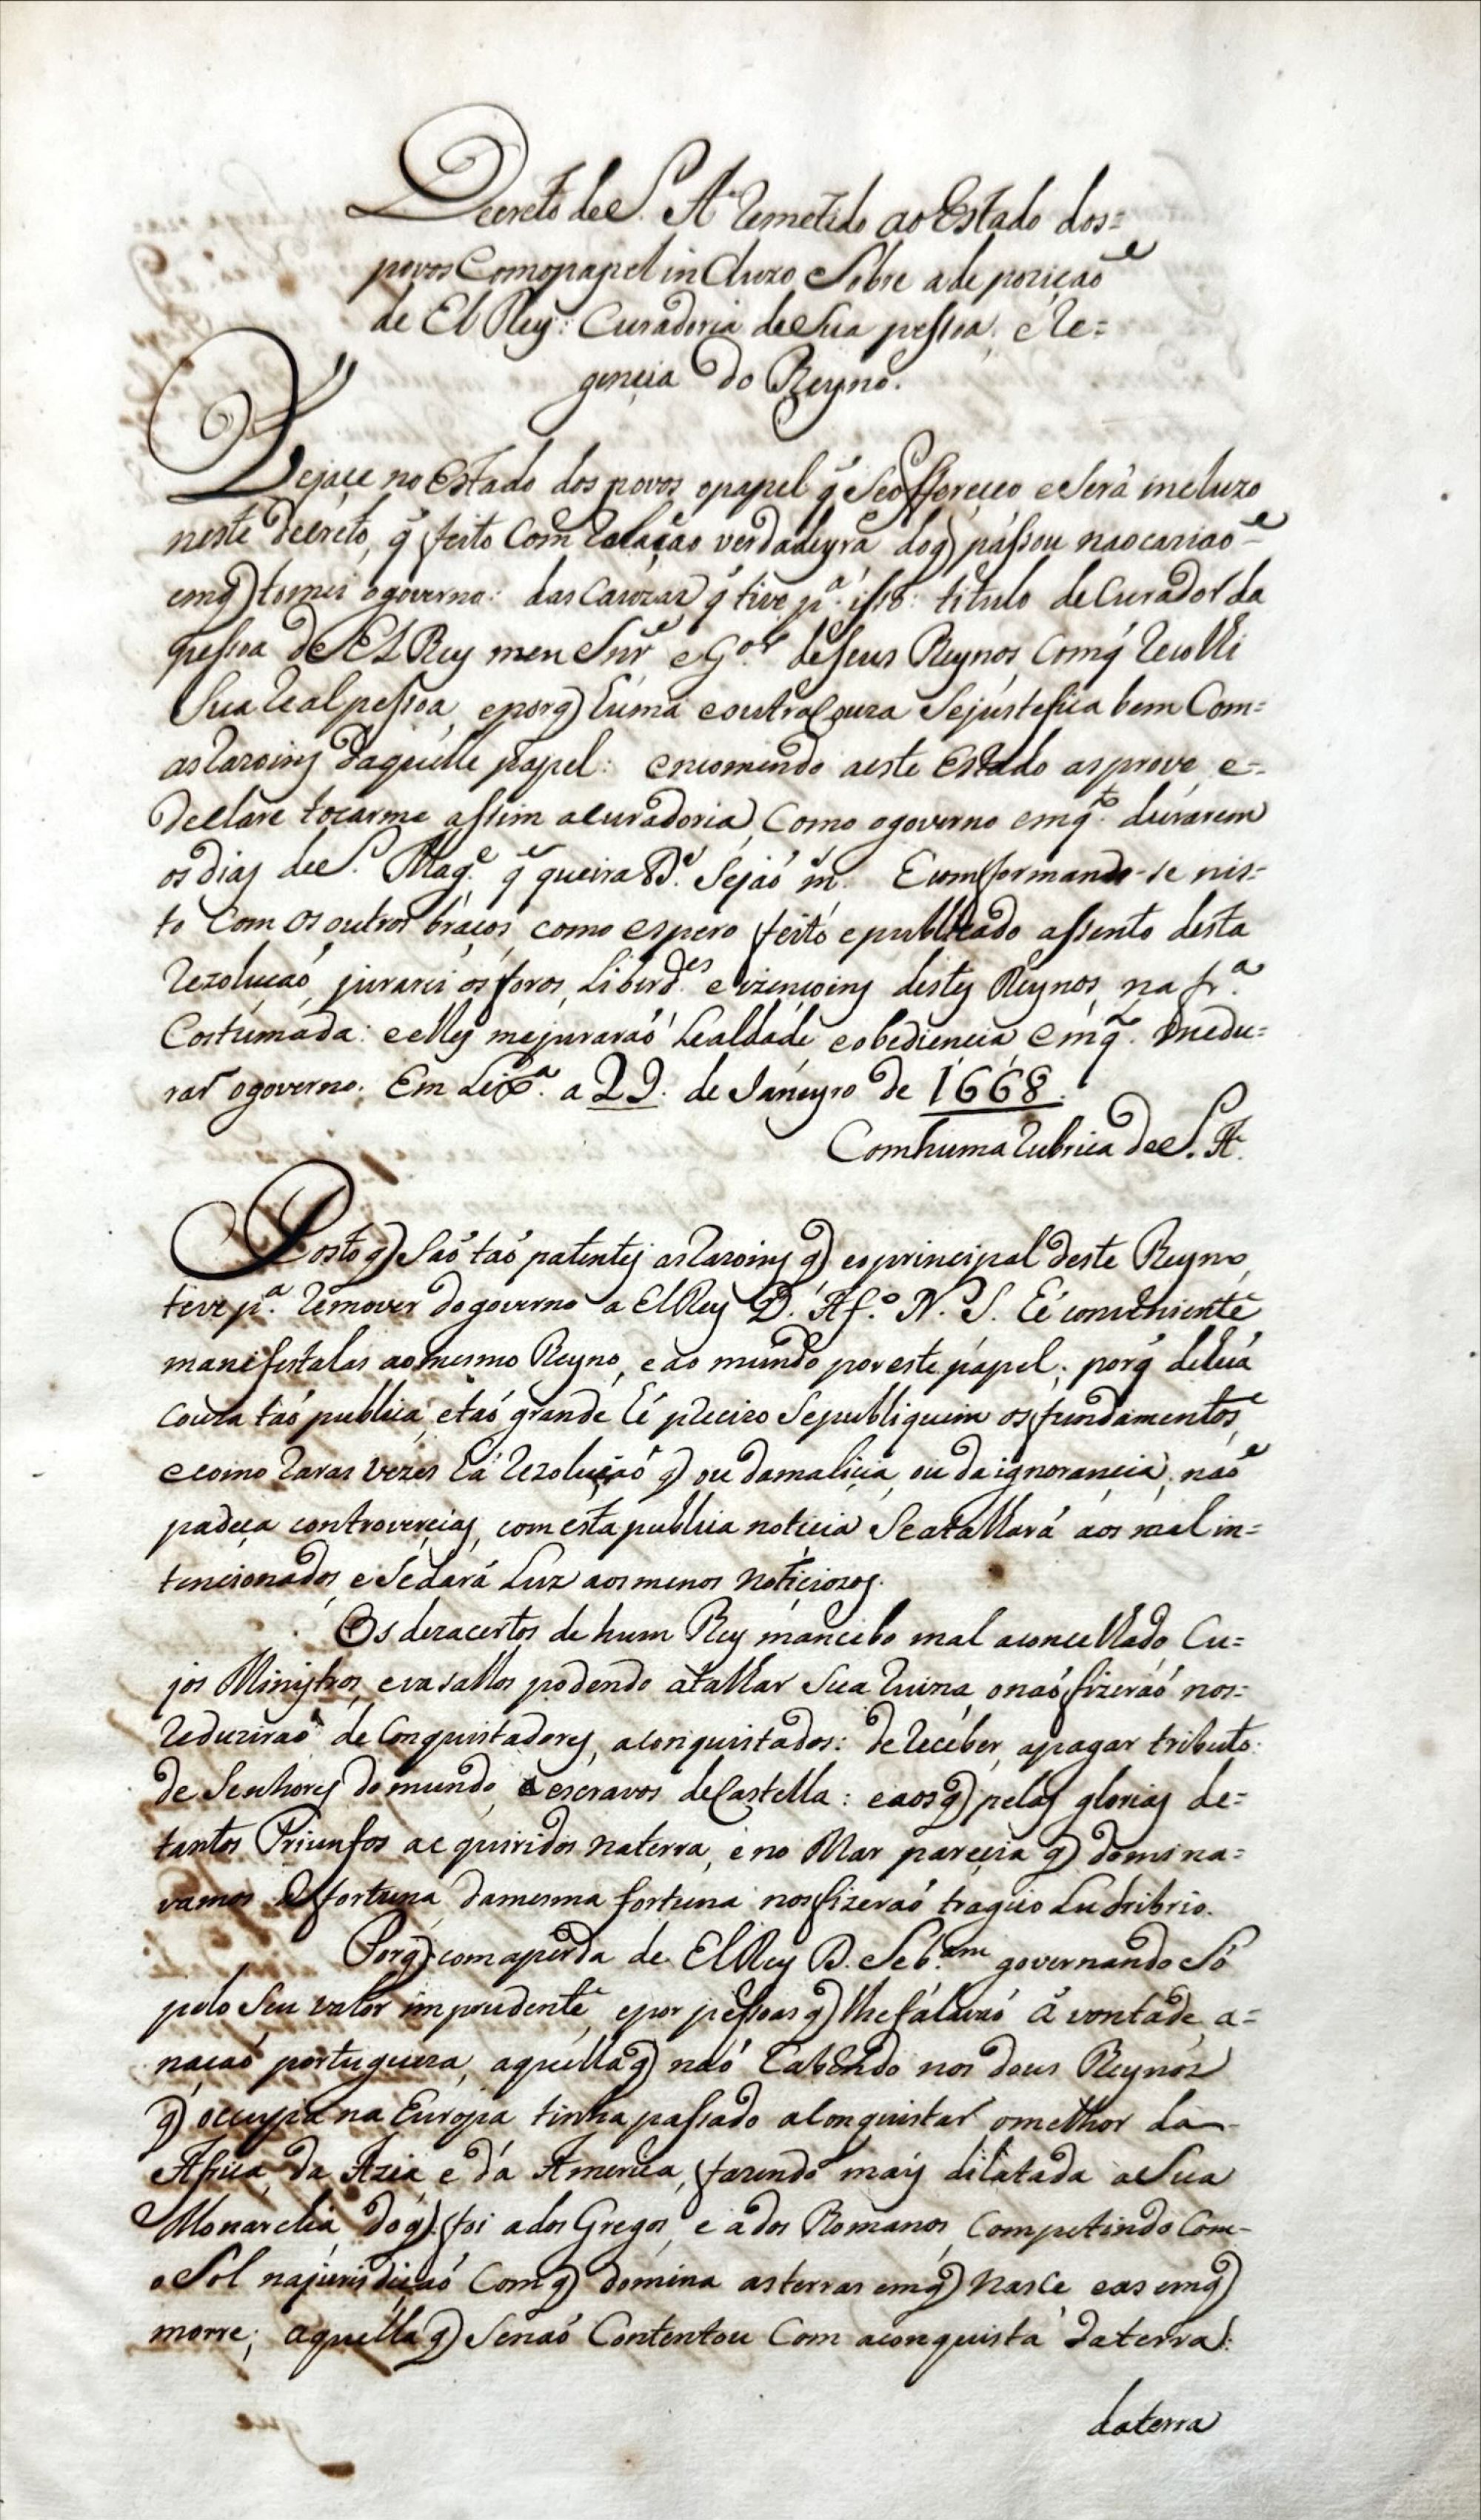 Decreto de S. A. remetido ao Estado dos=
povos Com o papel incluzo Sobre a depozição
de El Rey: Curadoria de Sua pessoa, e Re=
gencia do Reyno.
Vejace no Estado dos povos o papel q̃ Se offereceo e Será incluzo
neste decreto, q̃ feito Com Relação verdadeyra doq̃ passou na ocazião
emq̃ tomei o governo: das Cauzas q̃ tive p.ª isso: titulo de Curador da
pessoa de El Rey meu Snr̃ e G.or de seus Reynos, Comq̃ Recolhi
Sua Real pessoa, e porq̃ húma e outra Couza Se justefica bem Com=
as Razoins daquelle papel: encomendo a este Estado as prove, e=
declare tocarme assim a curadoria, Como o governo emq.to durarem
os dias de S. Mag.e q̃ queira D.s Sejaó m.tos E comformando-se nis=
to Com os outros braços, como espero, feito e publicado assento desta
Rezoluçaó, jurarei os foros, Liberd.es e izençoins destes Reynos, na fr.ª
Costumada: e elles me juraraó Lealdade e obediencia emq.to me du=
rar o governo. Em Lix.ª a 29. de Janeyro de 1668.
Com huma Rubrica de S. A.
Posto q̃ Saó taó patentes as Razoins q̃ o principal deste Reyno,
teve p.ª Remover do governo a El Rey D. Af.º N. S. hé conveniente
manifestalas ao mesmo Reyno, e ao mundo por este papel; porq̃ de huã
couza taó publica, e taó grande hé precizo Se publiquem os fundamentos,
e como Raras vezes há Rezoluçaó q̃ ou da malicia, ou da ignorancia, naó
padeça controvercias, com esta publica noticia Se atalhará aos mal in=
tencionados, e Se dará Luz aos menos noticiozos.
Os dezacertos de hum Rey mancebo mal aconcelhado, Cu=
jos Ministros, e vasallos podendo atalhar Sua Ruina, o naó fizeraó nos=
Reduziraó de Conquistadores, a Conquistados: de Receber, a pagar tributo:
de Senhores do mundo, a escravos de Castella: e aos q̃ pelas glorias de=
tantos Triunfos acquiridos na terra, e no Mar parecia q̃ domina=
vamos a fortuna, da mesma fortuna nos fizeraó tragico Ludribrio.
Porq̃ com a perda de El Rey D. Seb.am governando Só
pelo Seu valor imprudente, e por pessoas q̃ lhe falavaó á vontade, a=
naçaó portugueza, aquella q̃ naó Cabendo nos dous Reynos
q̃ occupa na Europa tinha passado a Conquistar o melhor da-
Africa, da Azia, e da America, fazendo mais dilatada a Sua
Monarchia, doq̃ foi a dos Gregos, e a dos Romanos, Competindo Com-
o Sol na jurisdiçaó Comq̃ domina as terras emq̃ nasce, e as emq̃
morre; aquella q̃ Senaó Contentou Com a conquista da terra:
da terra